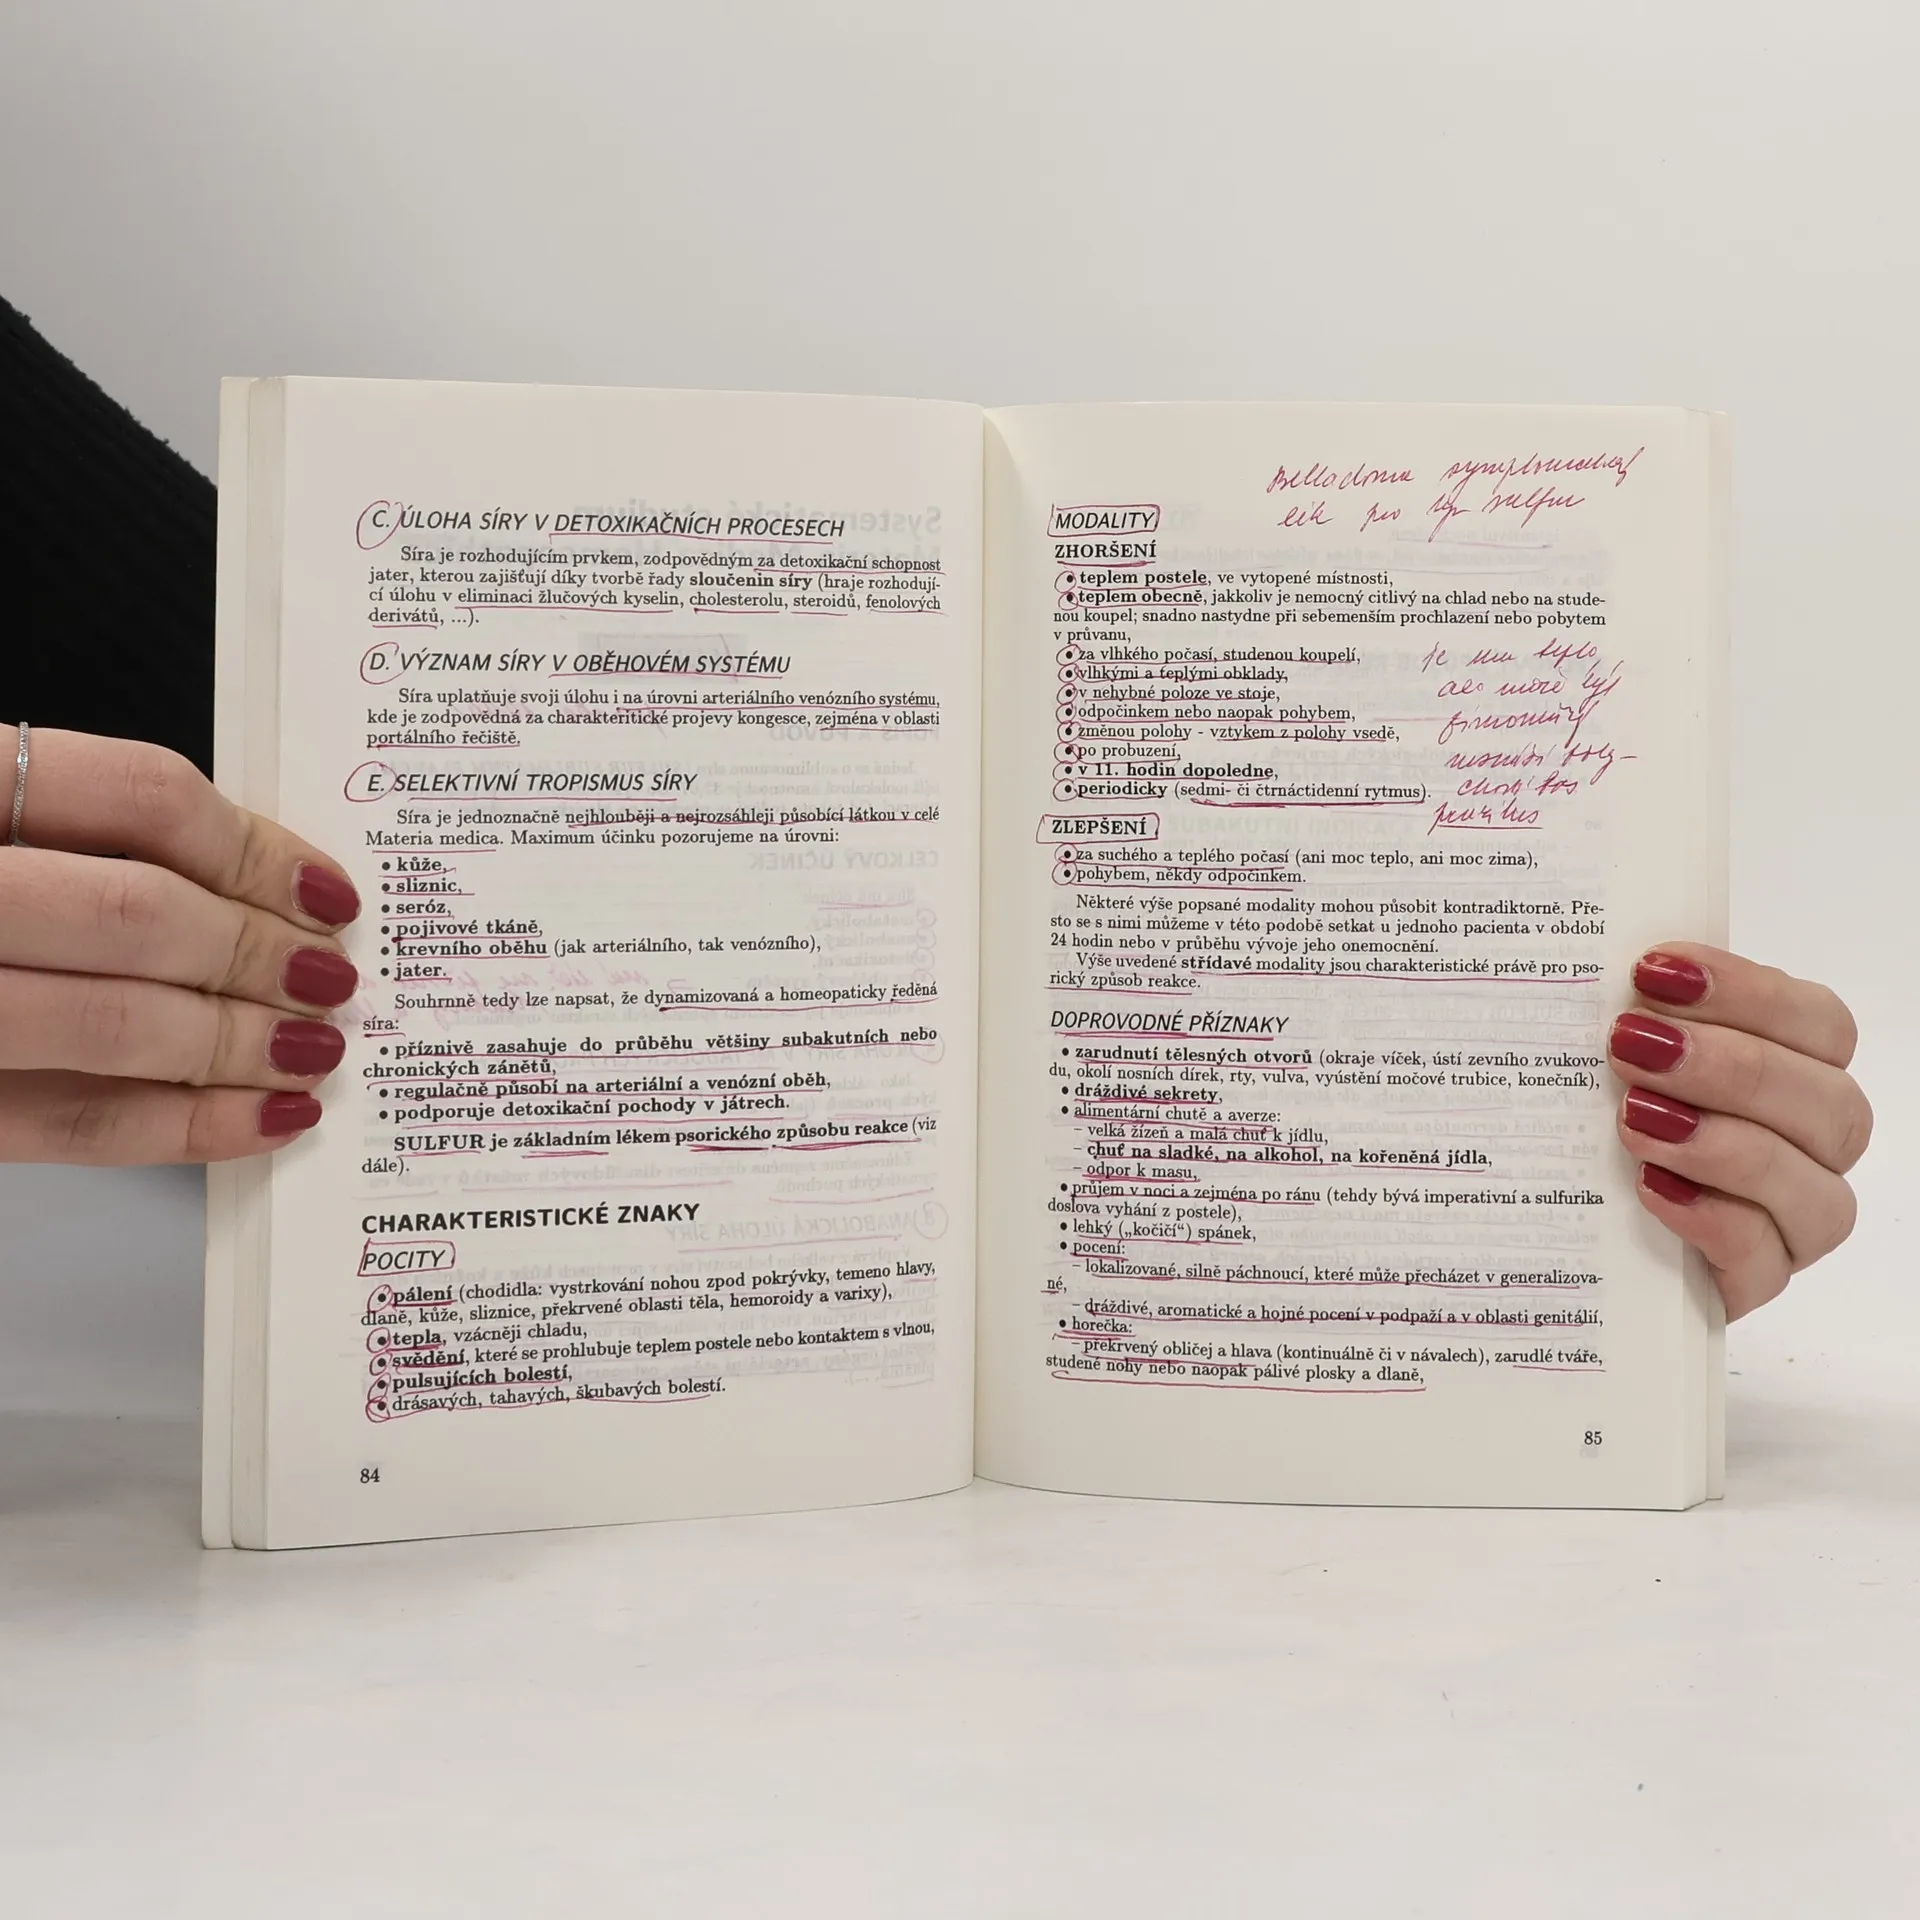 C. ÚLOHA SÍRY V DETOXIKAČNÍCH PROCESECH
Síra je rozhodujícím prvkem, zodpovědným za detoxikační schopnost
jater, kterou zajišťují díky tvorbě řady sloučenin síry (hraje rozhodují-
cí úlohu v eliminaci žlučových kyselin, cholesterolu, steroidů, fenolových
derivátů, ...).
D. VÝZNAM SÍRY V OBĚHOVÉM SYSTÉMU
Síra uplatňuje svoji úlohu i na úrovni arteriálního venózního systému,
kde je zodpovědná za charakteritické projevy kongesce, zejména v oblasti
portálního řečiště.
E. SELEKTIVNÍ TROPISMUS SÍRY
Síra je jednoznačně nejhlouběji a nejrozsáhleji působící látkou v celé
Materia medica. Maximum účinku pozorujeme na úrovni:
• kůže,
• sliznic,
• seróz,
• pojivové tkáně,
• krevního oběhu (jak arteriálního, tak venózního),
• jater.
Souhrnně tedy lze napsat, že dynamizovaná a homeopaticky ředěná
síra:
• příznivě zasahuje do průběhu většiny subakutních nebo
chronických zánětů,
• regulačně působí na arteriální a venózní oběh,
• podporuje detoxikační pochody v játrech.
SULFUR je základním lékem psorického způsobu reakce (viz
dále).
CHARAKTERISTICKÉ ZNAKY
POCITY
• pálení (chodidla: vystrkování nohou zpod pokrývky, temeno hlavy,
dlaně, kůže, sliznice, překrvené oblasti těla, hemoroidy a varixy),
• tepla, vzácněji chladu,
• svědění, které se prohlubuje teplem postele nebo kontaktem s vlnou,
• pulsujících bolestí,
• drásavých, tahavých, škubavých bolestí.
84
Belladonna symptomatický
lék pro typ sulfur
MODALITY
ZHORŠENÍ
• teplem postele, ve vytopené místnosti,
• teplem obecně, jakkoliv je nemocný citlivý na chlad nebo na stude-
nou koupel; snadno nastydne při sebemenším prochlazení nebo pobytem
v průvanu,
• za vlhkého počasí, studenou koupelí,
• vlhkými a teplými obklady,
• v nehybné poloze ve stoje,
• odpočinkem nebo naopak pohybem,
• změnou polohy - vztykem z polohy vsedě,
• po probuzení,
• v 11. hodin dopoledne,
• periodicky (sedmi- či čtrnáctidenní rytmus).
je mu teplo,
ale může být
zimomřivý
nesnáší boty –
chodí bos
ZLEPŠENÍ
• za suchého a teplého počasí (ani moc teplo, ani moc zima),
• pohybem, někdy odpočinkem.
Některé výše popsané modality mohou působit kontradiktorně. Pře-
sto se s nimi můžeme v této podobě setkat u jednoho pacienta v období
24 hodin nebo v průběhu vývoje jeho onemocnění.
Výše uvedené střídavé modality jsou charakteristické právě pro pso-
rický způsob reakce.
DOPROVODNÉ PŘÍZNAKY
• zarudnutí tělesných otvorů (okraje víček, ústí zevního zvukovo-
du, okolí nosních dírek, rty, vulva, vyústění močové trubice, konečník),
• dráždivé sekrety,
• alimentární chutě a averze:
– velká žízeň a malá chuť k jídlu,
– chuť na sladké, na alkohol, na kořeněná jídla,
– odpor k masu,
• průjem v noci a zejména po ránu (tehdy bývá imperativní a sulfurika
doslova vyhání z postele),
• lehký („kočičí“) spánek,
• pocení:
– lokalizované, silně páchnoucí, které může přecházet v generalizova-
né,
– dráždivé, aromatické a hojné pocení v podpaží a v oblasti genitálií,
• horečka:
– překrvený obličej a hlava (kontinuálně či v návalech), zarudlé tváře,
studené nohy nebo naopak pálivé plosky a dlaně,
85